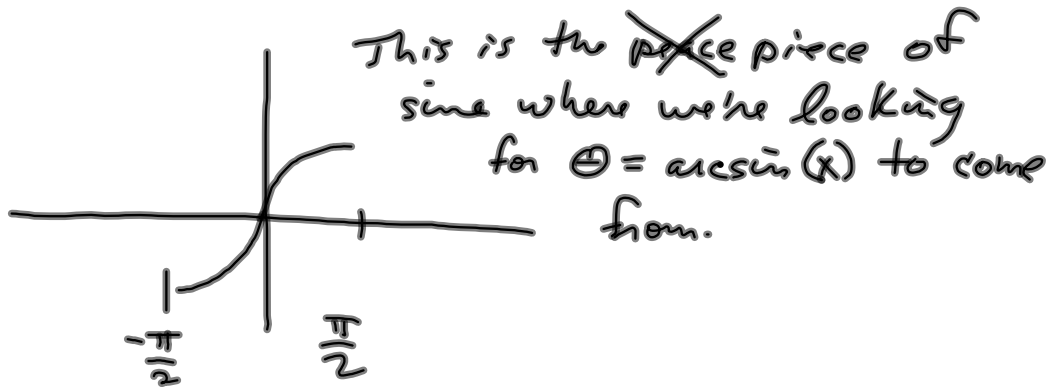 This is the peice piece of
sine where we're looking
for Θ = arcsin(x) to come
from.
-π/2
π/2